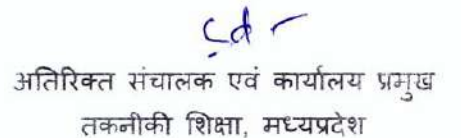 Sd-
अतिरिक्त संचालक एवं कार्यालय प्रमुख
तकनीकी शिक्षा, मध्यप्रदेश